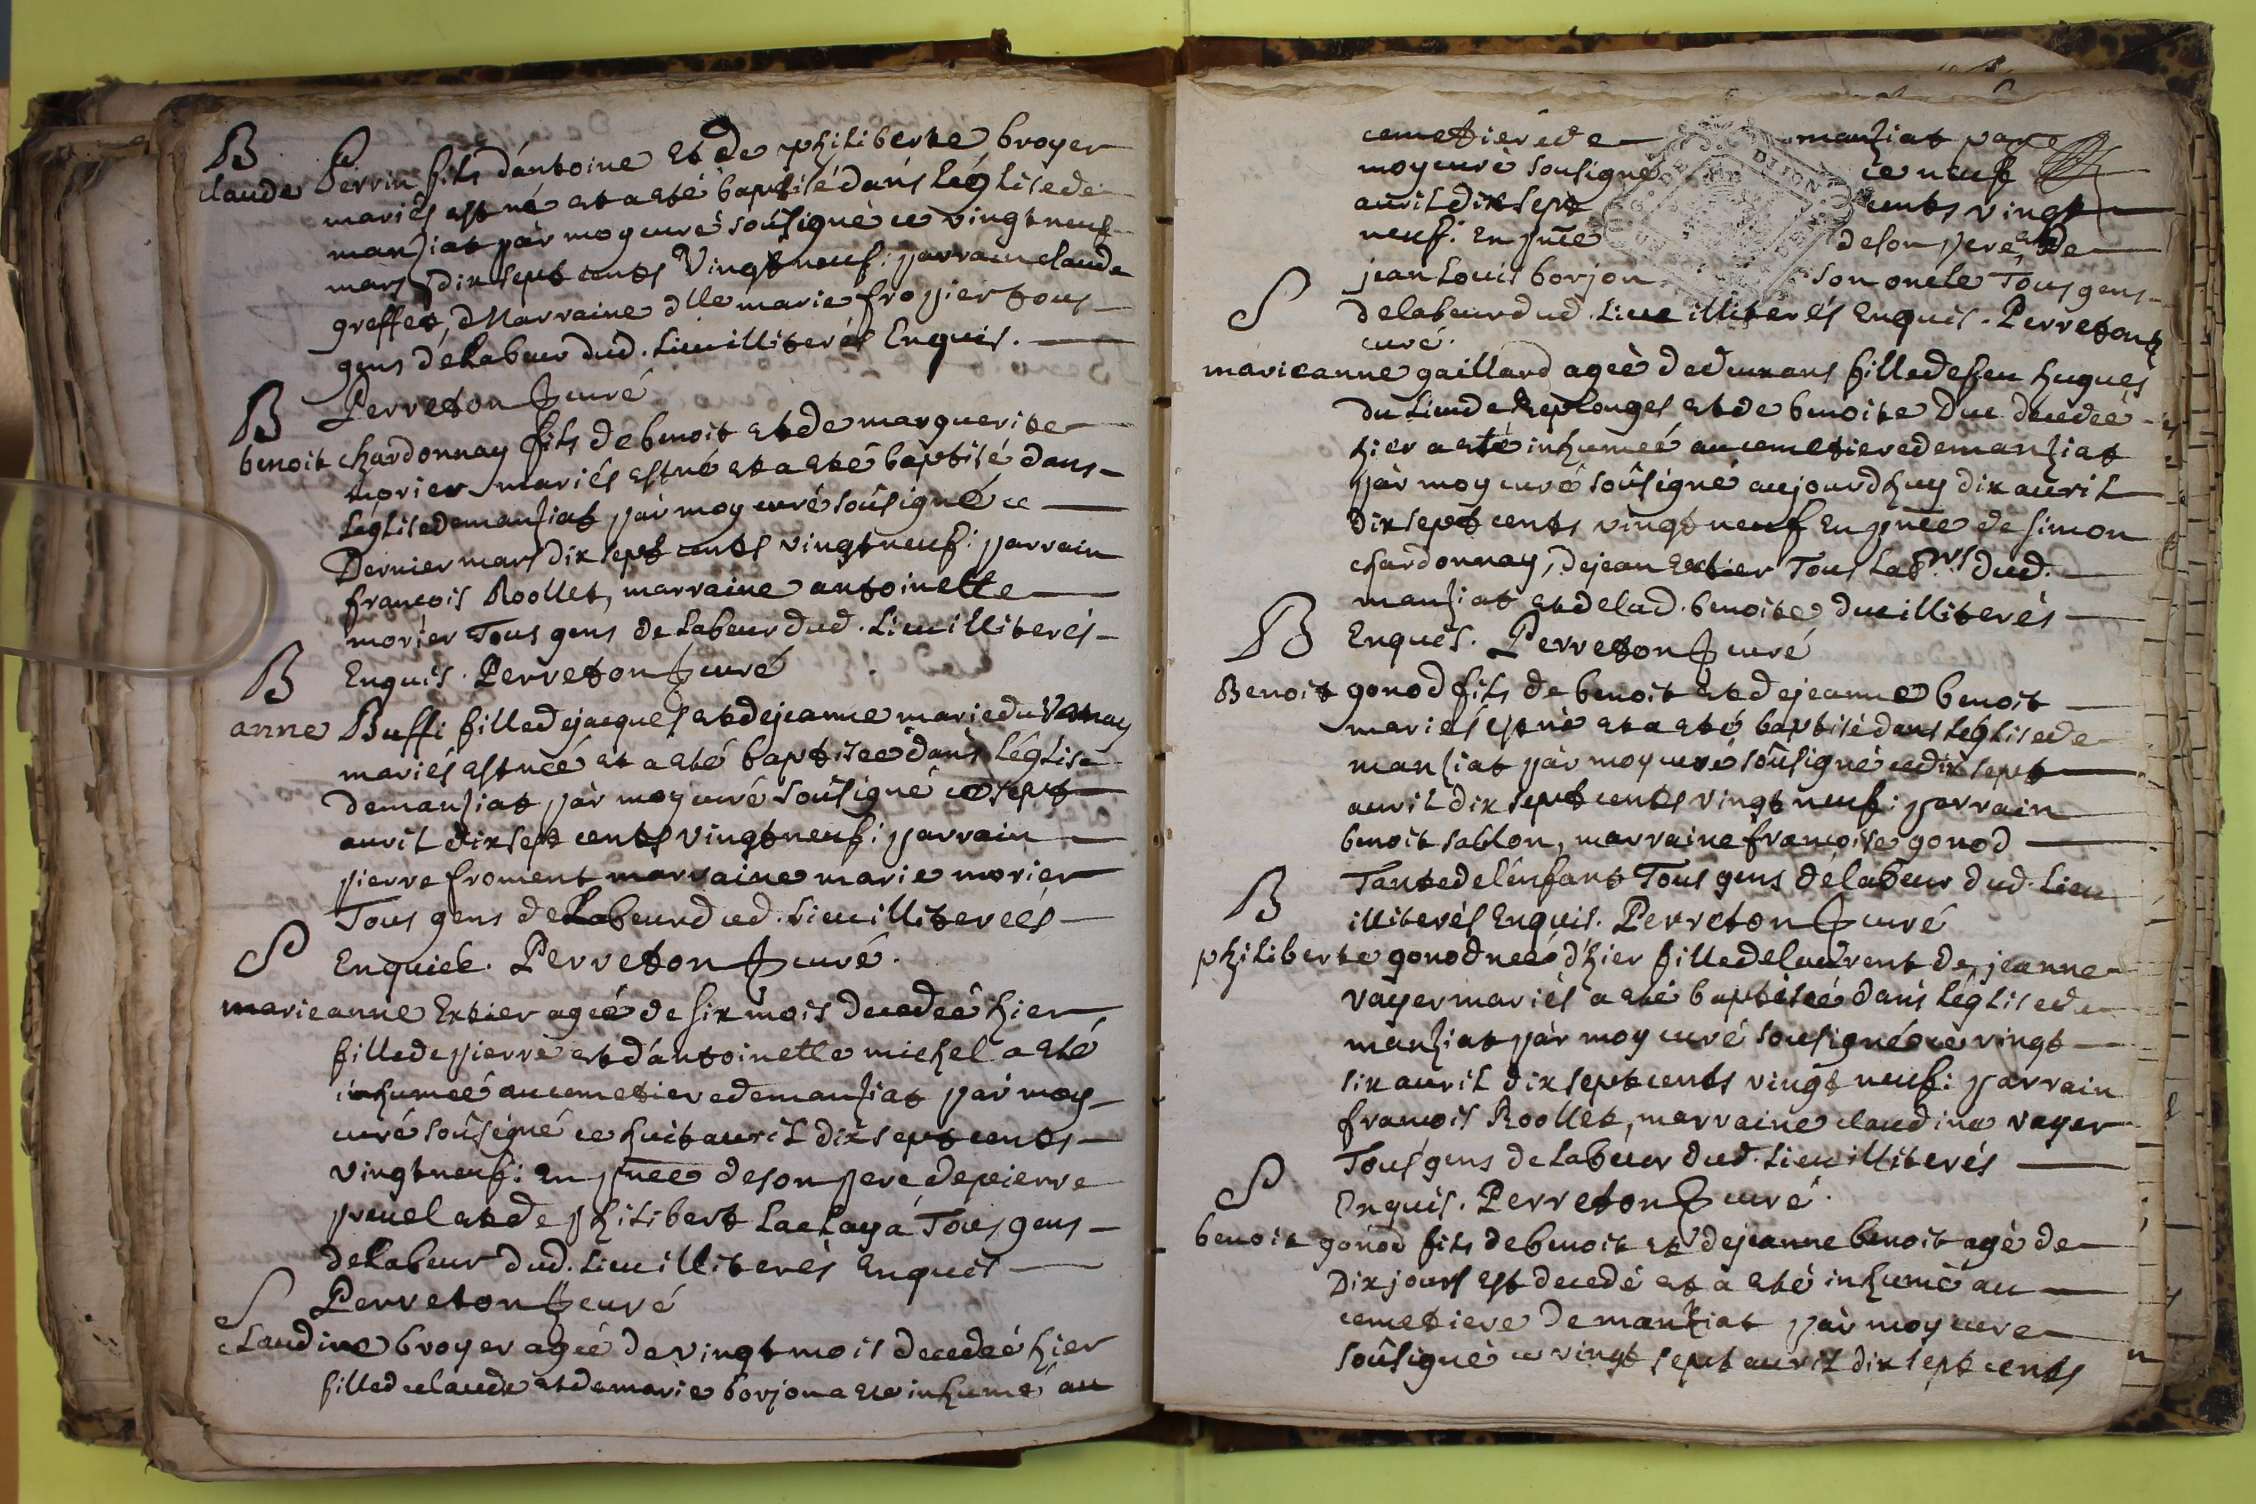 B
claude Perrin fils d'antoine et de philiberte broyer
mariés est né et a eté baptisé dans l'église de
manziat par moy curé sousigné ce vingt neuf
mars dix sept cents Vingt neuf: parrain claude
greffet, Marraine dlle marie fropier tous
gens de labeur dud. Lieu illiterés Enquis.
Perreton curé
B
benoit chardonnay fils de benoit et de marguerite
morier mariés est né et a eté baptisé dans
l'église de manziat par moy curé sousigné ce
Dernier mars dix sept cents vingt neuf: parrain
francois Roollet, marraine antoinette
morier Tous gens de labeur dud. Lieu illiterés
Enquis. Perreton curé
B
anne Buffi fille de jacques et de jeanne marie du Varnay
mariés est née et a eté baptisée dans l'église
de manziat par moy curé sousigné ce sept
auril dix sept cents vingt neuf: parrain
pierre froment marraine marie morier
Tous gens de Labeur dud. Lieu illiterées
Enquiée. Perreton curé.
S
marie anne Extier agée de six mois decedée hier
fille de pierre et d'antoinette michel a eté
inhumée au cemetiere de manziat par moy
curé sousigné ce huit auril dix sept cents
vingt neuf: en pnce de son pere de pierre
pruel et de philibert Lachaya Tous gens
de labeur dud. Lieu illiterés enquis
Perreton curé
S
Claudine broyer agée de vingt mois decedée hier
fille de claude et de marie borjon a eté inhumé au
cemetiere de manziat par
moy curé sousigné ce neuf
auril dix sept cents vingt
neuf: en pnce de son pere et de
jean Louis borjon son oncle Tous gens
de labeur dud. Lieu illiterés Enquis. Perreton
curé.
S
marie anne gaillard agée de deux ans fille de feu hugues
du Lieu de Replonges et de benoite Duc decedée
hier a eté inhumée au cemetiere de manziat
par moy curé sousigné aujourdhuy dix auril
dix sept cents vingt neuf En pnce de simon
chardonnay, de jean Extier Tous Labrs dud.
manziat et de lad. benoite duc illiterés
Enquis. Perreton curé
B
Benoit gonod fils de benoit et de jeanne benoit
mariés est né et a eté baptisé dans l'église de
manziat par moy curé sousigné ce dix sept
auril dix sept cents vingt neuf: parrain
benoit sablon, marraine francoise gonod
Tante de l'enfant Tous gens de labeur dud. Lieu
illiterés Enquis. Perreton curé
B
philiberte gonod neé d'hier fille de laurent de jeanne
vayer mariés a eté baptisée dans l'église de
manziat par moy curé sousigné ce vingt
six auril dix sept cents vingt neuf: parrain
francois Roollet, marraine claudine vayer
Tous gens de labeur dud. Lieu illiterés
Enquis. Perreton curé.
S
benoit gonod fils de benoit et de jeanne benoit agé de
Dix jours est decedé et a eté inhumé au
cemetiere de manziat par moy curé
sousigné ce vingt sept auril dix sept cents